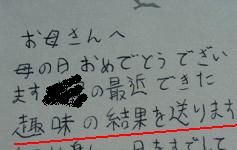 お母さんへ
母の日おめでとうござい
ます の最近できた
趣味の結果を送ります